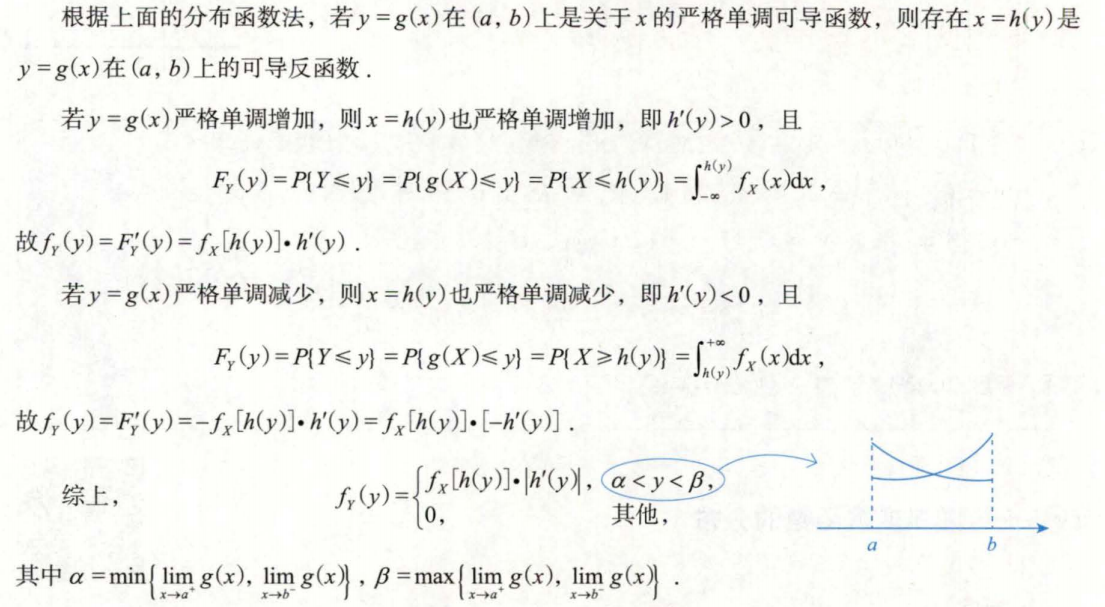 根据上面的分布函数法，若y=g(x)在(a, b)上是关于x的严格单调可导函数，则存在x=h(y)是
y=g(x)在(a, b)上的可导反函数．
若y=g(x)严格单调增加，则x=h(y)也严格单调增加，即h′(y)>0，且
F_Y(y)=P{Y≤y}=P{g(X)≤y}=P{X≤h(y)}=∫_{-∞}^{h(y)} f_X(x)dx，
故f_Y(y)=F′_Y(y)=f_X[h(y)]·h′(y)．
若y=g(x)严格单调减少，则x=h(y)也严格单调减少，即h′(y)<0，且
F_Y(y)=P{Y≤y}=P{g(X)≤y}=P{X≥h(y)}=∫_{h(y)}^{+∞} f_X(x)dx，
故f_Y(y)=F′_Y(y)=-f_X[h(y)]·h′(y)=f_X[h(y)]·[-h′(y)]．
综上，f_Y(y)={f_X[h(y)]·|h′(y)|，α<y<β，
0，其他，
a b
其中α=min{lim_{x→a⁺} g(x), lim_{x→b⁻} g(x)}，β=max{lim_{x→a⁺} g(x), lim_{x→b⁻} g(x)}．